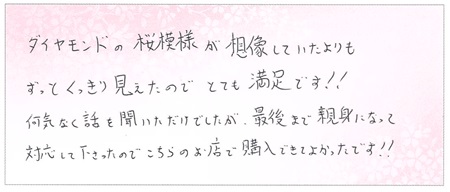 ダイヤモンドの桜模様が想像していたよりも
ずっとくっきり見えたのでとても満足です!!
何気なく話を聞いただけでしたが、最後まで親身になって
対応して下さったのでこちらのお店で購入できてよかったです!!